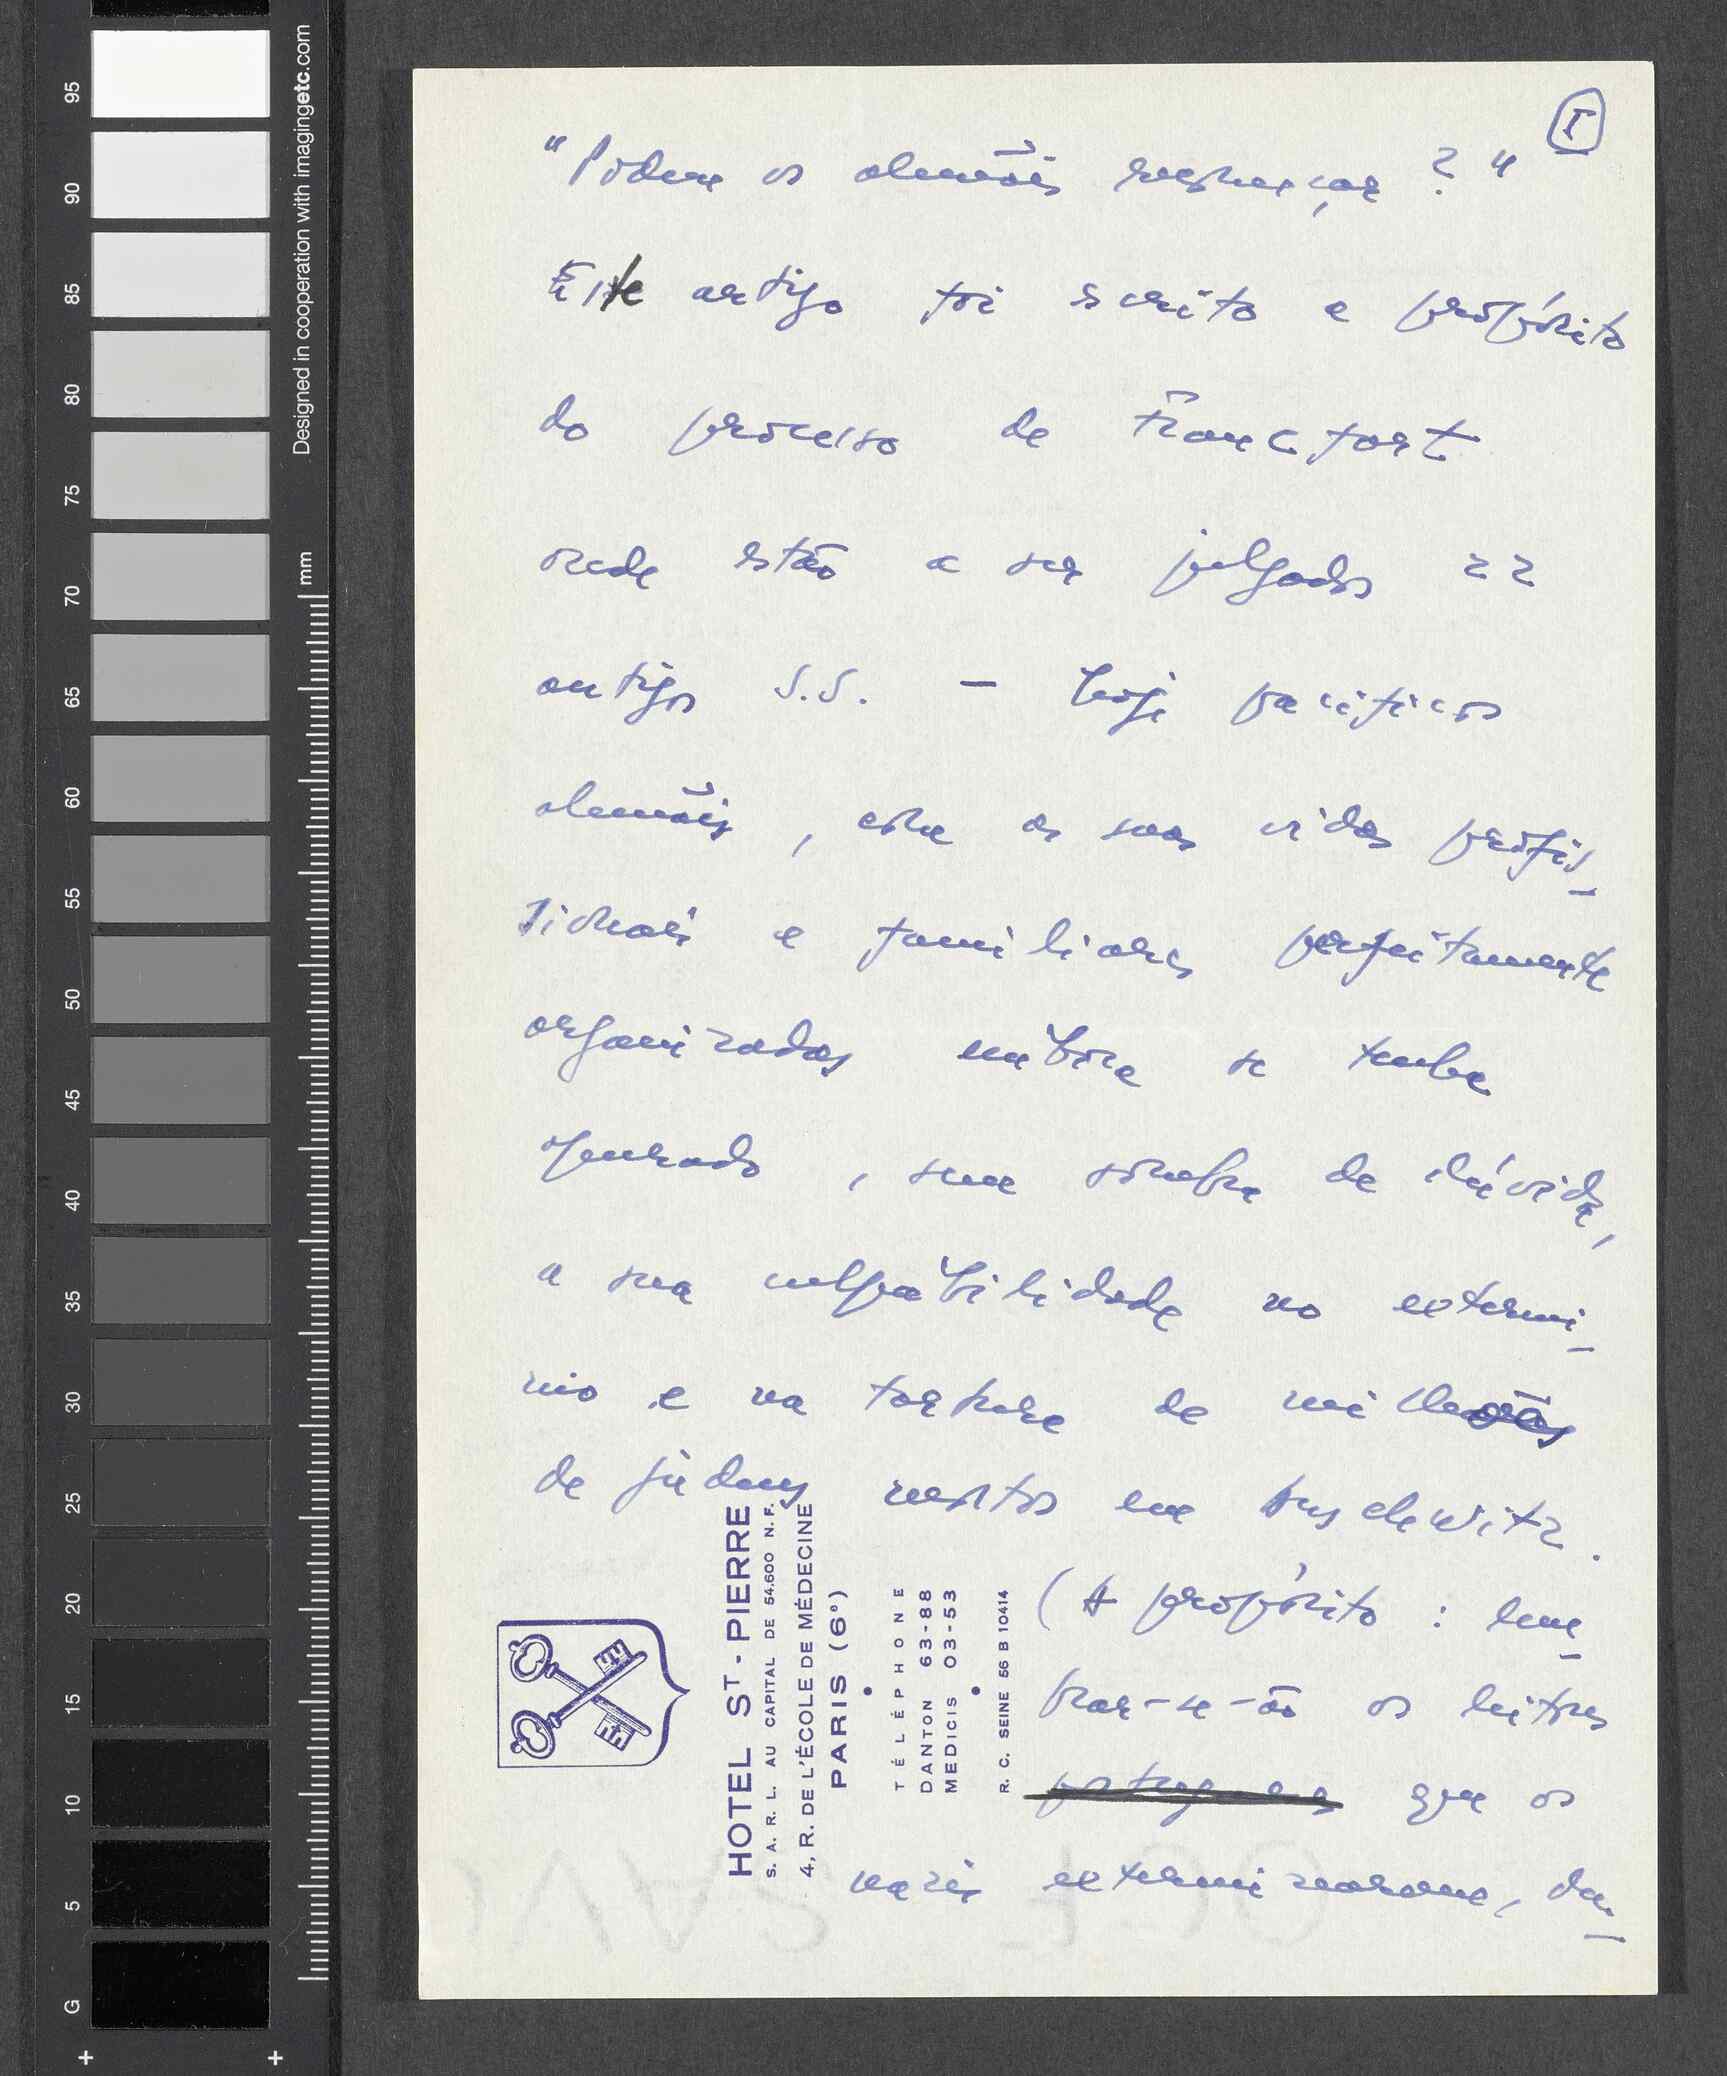 I
"Podem os alemãis recomeçar ?"
Este artigo foi escrito a propósito
do processo de Francfort
onde estão a ser julgados 22
antigos S.S. — hoje pacíficos
alemãis, com as suas vidas profis-
sionais e familiares perfeitamente
organizadas embora se tenha
apurado, sem sombra de dúvida,
a sua culpabilidade no extermi-
nio e na tortura de milhões
de judeus mortos em Auschwitz.
(A propósito : lem-
brar-se-ão os leitores
que os
nazis exterminaram, du-
HOTEL ST-PIERRE
S. A. R. L. AU CAPITAL DE 54.600 N. F.
4, R. DE L'ÉCOLE DE MÉDECINE
PARIS (6e)
TÉLÉPHONE
DANTON 63-88
MEDICIS 03-53
R. C. SEINE 56 B 10414
Designed in cooperation with imagingetc.com
mm
95
90
85
80
75
70
65
60
55
50
45
40
35
30
25
20
15
10
5
G